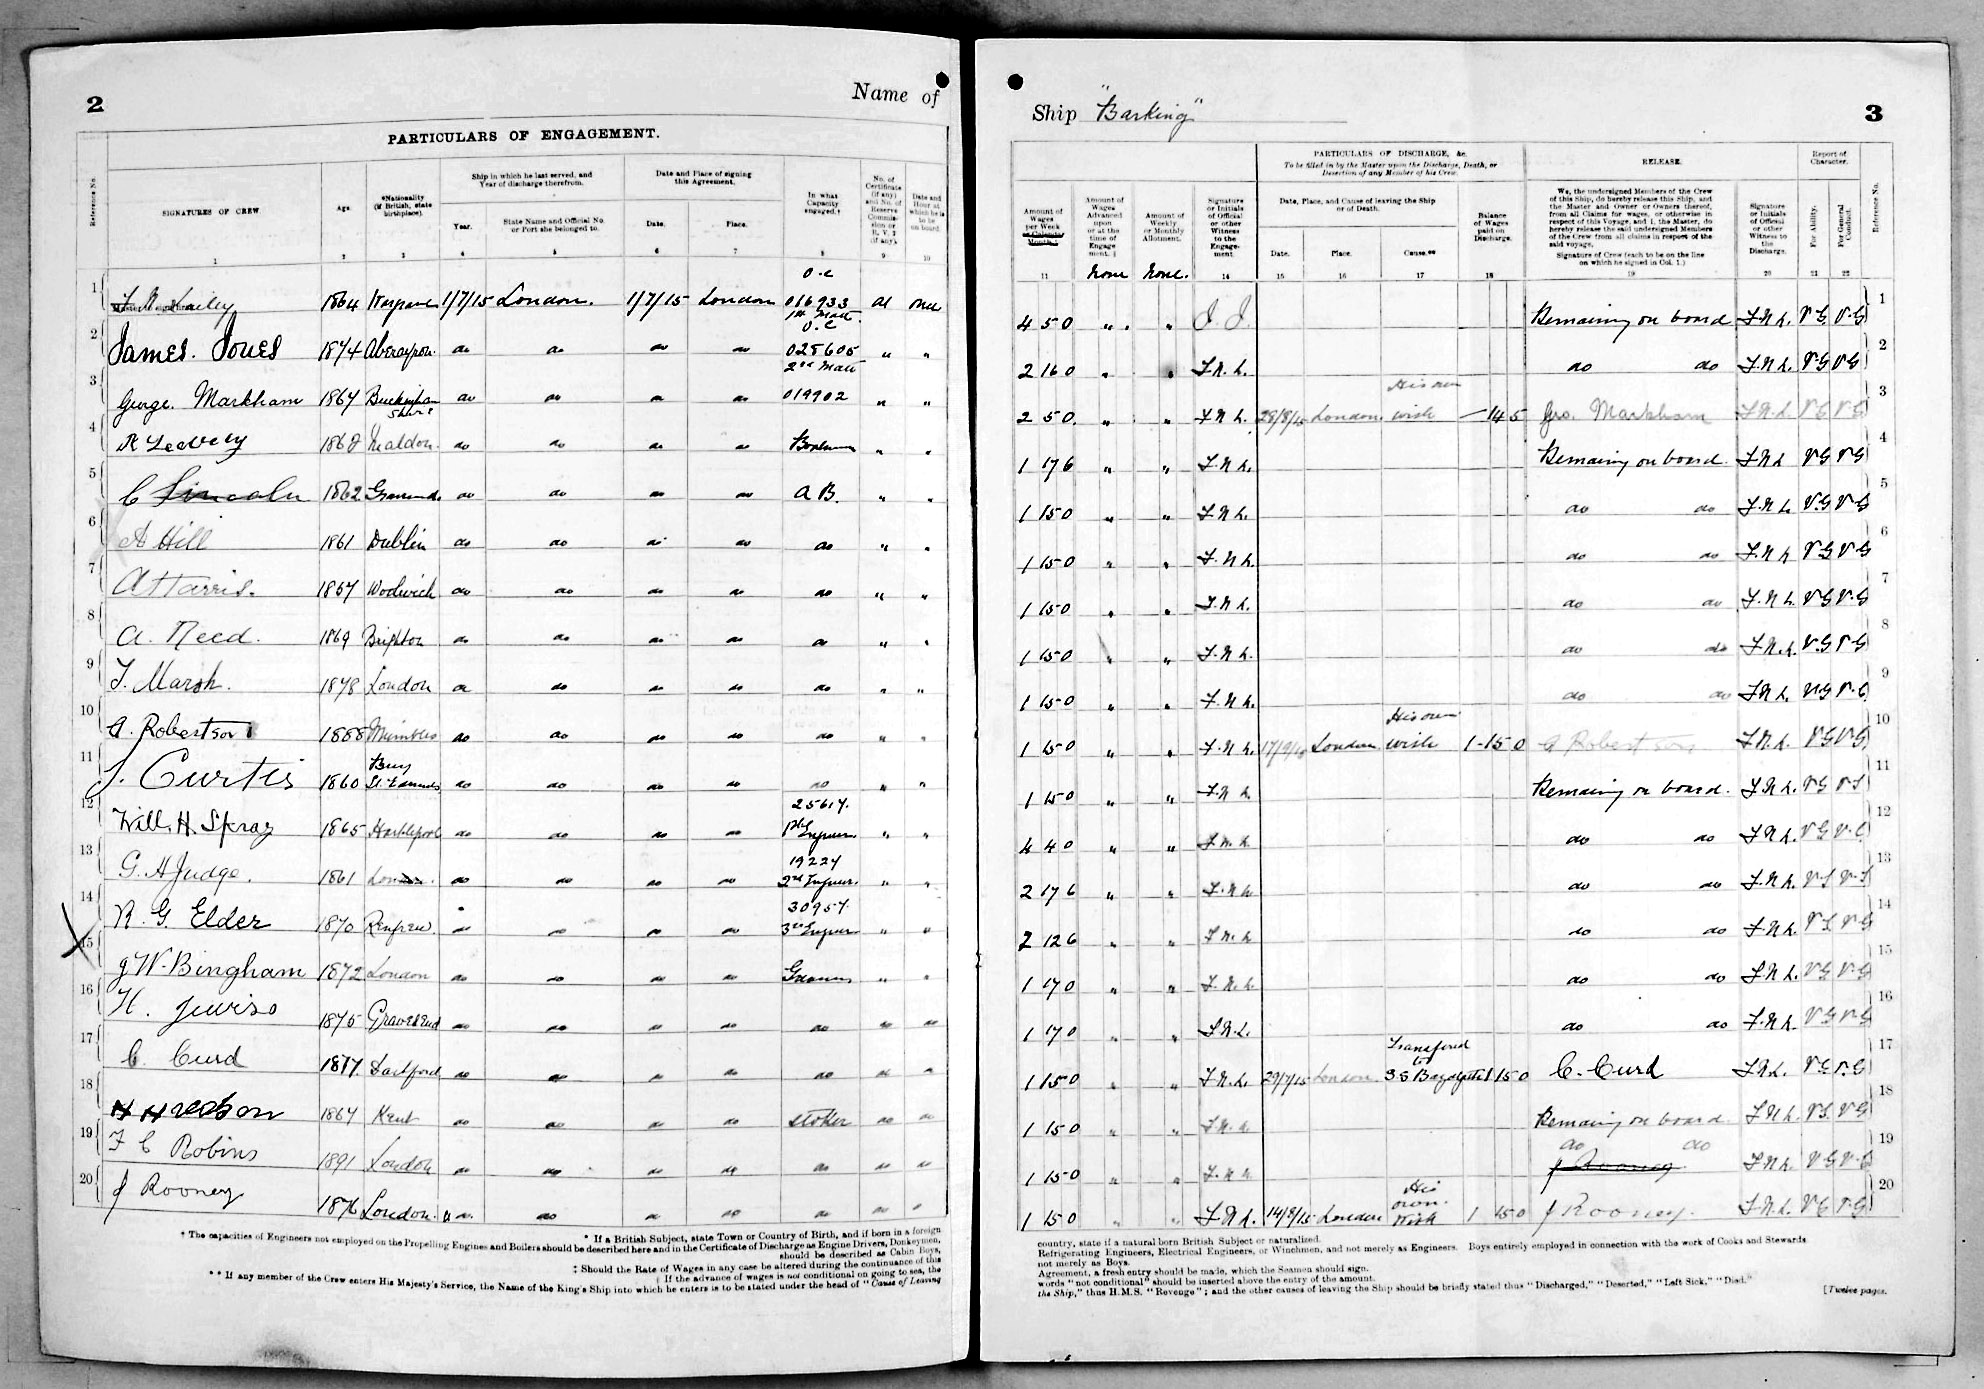 2
Name of
PARTICULARS OF ENGAGEMENT.
Reference No.
SIGNATURES OF CREW
Age.
*Nationality (If British, state birthplace).
Ship in which he last served, and Year of discharge therefrom.
Year.
State Name and Official No. or Port she belonged to.
Date and Place of signing this Agreement.
Date.
Place.
In what Capacity engaged.†
No. of Certificate (if any) and No. of Reserve Commission or R.V.2 (if any).
Date and Hour at which he is to be on board.
1 2 3 4 5 6 7 8 9 10
O.C
1 1864 1/7/15 London. 1/7/15 London 016933 at once
1st Mate
O.C
2 James. Jones 1874 Aberayron. do do do do 028605 " "
2nd Mate
3 George. Markham 1867 Buckingham shire do do do do 019902 " "
4 1868 Maldon. do do do do " "
5 C Lincoln 1862 do do do do A B. " "
6 A Hill 1861 Dublin do do do do do " "
7 A Harris. 1867 Woolwich do do do do do " "
8 A. Reed. 1869 Brighton do do do do do " "
9 T. Marsh. 1878 London do do do do do " "
10 A. Robertson 1888 Mumbles do do do do do " "
11 J. Curtis 1860 Bury St. Edmunds do do do do do " "
25617.
12 Will. H. Spray 1865 Hartlepool do do do do 1st Engineer " "
19227
13 G. H Judge. 1861 London. do do do do 2nd Engineer. " "
30957.
14 R. G. Elder 1870 Renfrew. do do do do 3rd Engineer " "
15 J W. Bingham 1872 London do do do do Greaser " "
16 H. 1875 Gravesend do do do do do do do
17 C. Curd 1877. Dartford do do do do do " "
18 1867 Kent do do do do Stoker do do
19 F C Robins 1891 London do do do do do " "
20 J Rooney 1876 London. do do do do do " "
* If a British Subject, state Town or Country of Birth, and if born in a foreign
† The capacities of Engineers not employed on the Propelling Engines and Boilers should be described here and in the Certificate of Discharge as Engine Drivers, Donkeymen,
should be described as Cabin Boys,
‡ Should the Rate of Wages in any case be altered during the continuance of this
If the advance of wages is not conditional on going to sea, the
** If any member of the Crew enters His Majesty's Service, the Name of the King's Ship into which he enters is to be stated under the head of "Cause of Leaving
Ship "Barking"
3
Amount of Wages per Week or Calendar Month.
Amount of Wages Advanced upon or at the time of Engagement.
Amount of Weekly or Monthly Allotment.
Signature or Initials of Official or other Witness to the Engagement.
PARTICULARS OF DISCHARGE, &c.
To be filled in by the Master upon the Discharge, Death, or Desertion of any Member of his Crew.
Date, Place, and Cause of leaving the Ship or of Death.
Date.
Place.
Cause.**
Balance of Wages paid on Discharge.
RELEASE.
We, the undersigned Members of the Crew of this Ship, do hereby release this Ship, and the Master and Owner or Owners thereof, from all Claims for wages, or otherwise in respect of this Voyage, and I, the Master, do hereby release the said undersigned Members of the Crew from all claims in respect of the said voyage.
Signature of Crew (each to be on the line on which he signed in Col. 1.)
Signature or Initials of Official or other Witness to the Discharge.
Report of Character.
For Ability.
For General Conduct.
Reference No.
11 none none. 14 15 16 17 18 19 20 21 22
4 5 0 " " J. J. Remaining on board F.N.L. V.G. V.G 1
2 16 0 " " F.N.L. do do F.N.L. V.G V.G 2
2 5 0. " " F.N.L. 28/8/15 London. His own wish —14 5 Geo. Markham F.N.L V.G V.G 3
1 17 6 " " F.N.L. Remaining on board. F.N.L V.G V.G 4
1 15 0 " " F.N.L. do do F.N.L V.G V.G 5
1 15 0 " " F.N.L. do do F.N.L V.G V.G 6
1 15 0 " " F.N.L. do do F.N.L. V.G V.G 7
1 15 0 " " F.N.L. do do F.N.L. V.G V.G 8
1 15 0 " " F.N.L. do do F.N.L V.G V.G 9
1 15 0 " " F.N.L. London His own wish 1-15 0 A Robertson F.N.L. V.G V.G 10
1 15 0 " " F.N.L. Remaining on board. F.N.L. V.G V.G 11
4 4 0 " " F.N.L. do do F.N.L. V.G V.G 12
2 17 6 " " F.N.L. do do F.N.L. V.G V.G 13
2 12 6 " " F.N.L do do F.N.L. V.G V.G 14
1 17 0 " " F.N.L. do do F.N.L V.G V.G 15
1 17 0 " " F.N.L. do do F.N.L V.G V.G 16
1 15 0 " " F.N.L. 29/7/15 London Transfered to 1 15 0 C. Curd F.N.L. V.G V.G 17
1 15 0 " " F.N.L. Remaining on board. F.N.L V.G V.G 18
do do
1 15 0 " " F.N.L J Rooney F.N.L. V.G V.G 19
1 15 0 " " F.N.L. 14/8/15 London His own wish 1 15 0 J Rooney. F.N.L V.G V.G 20
country, state if a natural born British Subject or naturalized.
Refrigerating Engineers, Electrical Engineers, or Winchmen, and not merely as Engineers. Boys entirely employed in connection with the work of Cooks and Stewards
not merely as Boys.
Agreement, a fresh entry should be made, which the Seamen should sign.
words "not conditional" should be inserted above the entry of the amount.
the Ship," thus H.M.S. "Revenge"; and the other causes of leaving the Ship should be briefly stated thus "Discharged," "Deserted," "Left Sick," "Died."
[Twelve pages.